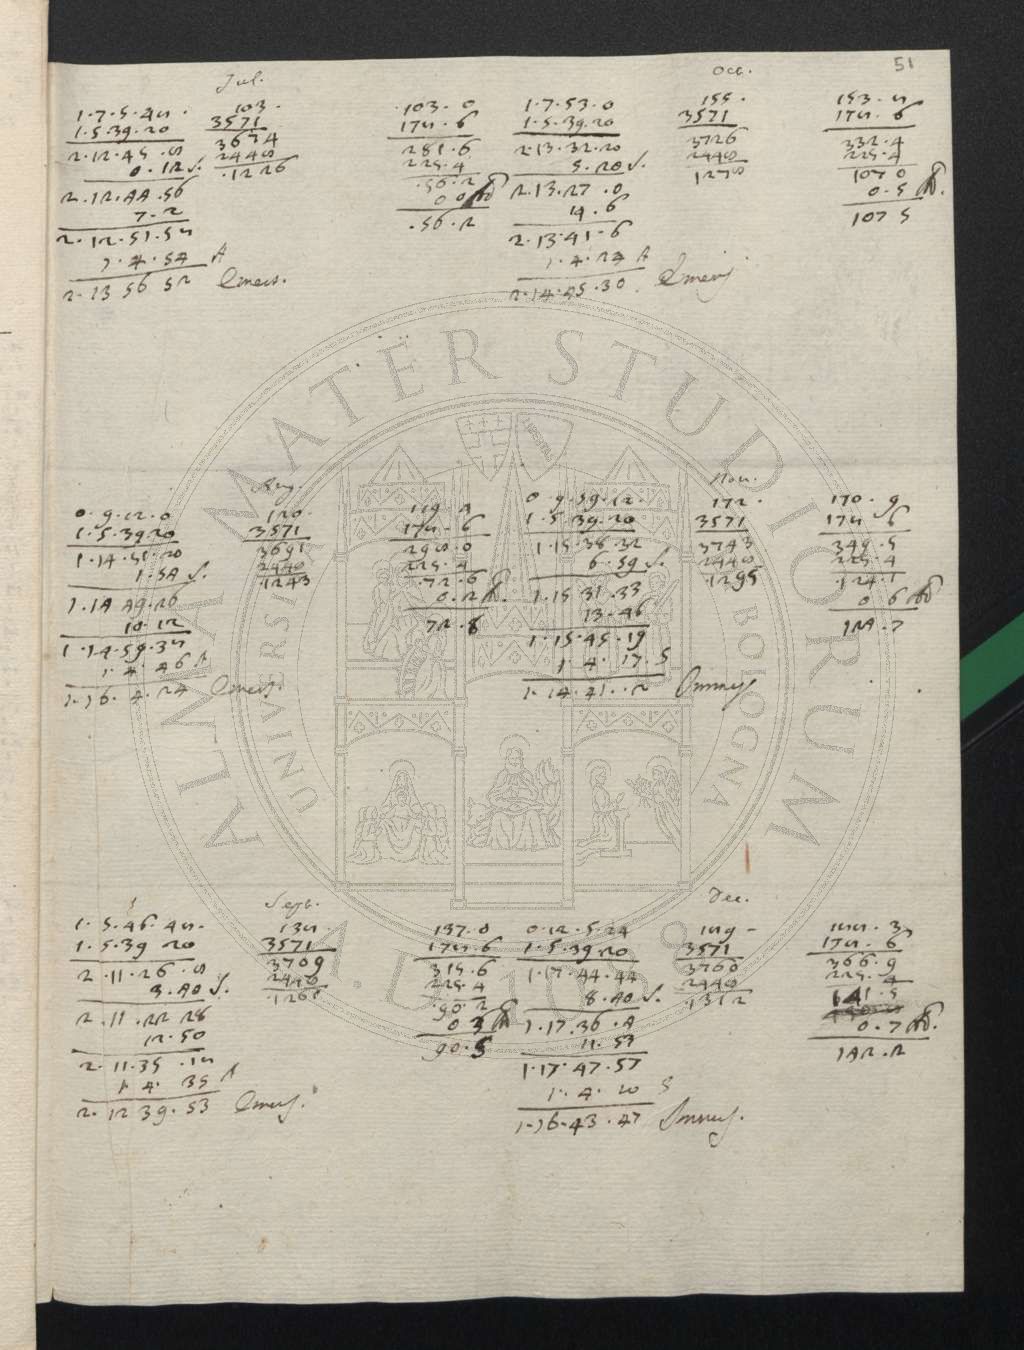 51
Jul.
1.7.5.48.
1.5.39.20
2.12.45.8
0.12 S.
2.12.44.56
7.2
2.12.51.58
1.4.54 A
2.13 56 52
103.
3571
3674
2448
.1226
103.0
178.6
281.6
225.4
.56.2
0 0 Ad
.56.2
Oct.
1.7.53.0
1.5.39.20
2.13.32.20
5.20 S.
2.13.27.0
14.6
2.13.41.6
1.4.24 A
2.14.45.30
155.
3571
3726
2448
1278
153.8
178.6
332.4
225.4
107 0
0.5 Ad.
107 5
Aug.
0.9.12.0
1.5.39 20
1.14.51.20
1.54 S.
1.14 49.26
10.12
1.14.59.38
1.4.46 A
1.16.4.24
120.
3571
3691
2448
1243
119 4
178.6
298.0
225.4
.72.6
0.2 Ad.
72.8
Nov.
0.9.59.12.
1.5.39.20
1.15.38.32
6.59 S.
1.15 31.33
13.46
1.15.45.19
1.4.17.S
1.14.41..2
172.
3571
3743
2448
1295
170.9
178 6
349.5
225.4
.124.1
0 6 Ad
124.7
Sept.
1.5.46.48.
1.5.39 20
2.11.26.8
3.40 S.
2.11.22 28
12.50
2.11.35.18
1.4.35 A
2.12 39.53
138.
3571
3709
2448
.1261
137.0
178.6
315.6
225.4
90 2
0 3 Ad
90.5
Dec.
0.12.5.24
1.5.39.20
1.17.44.44
8.40 S.
1.17.36.4
11.53
1.17.47.57
1.4.10 S
1.16.43.47
189
3571
3760
2448
1312
188.3
178.6
366.9
225.4
141.5
0.7 Ad.
142.2
ALMA MATER STUDIORUM
UNIVERSITÀ BOLOGNA
A.D. 1088